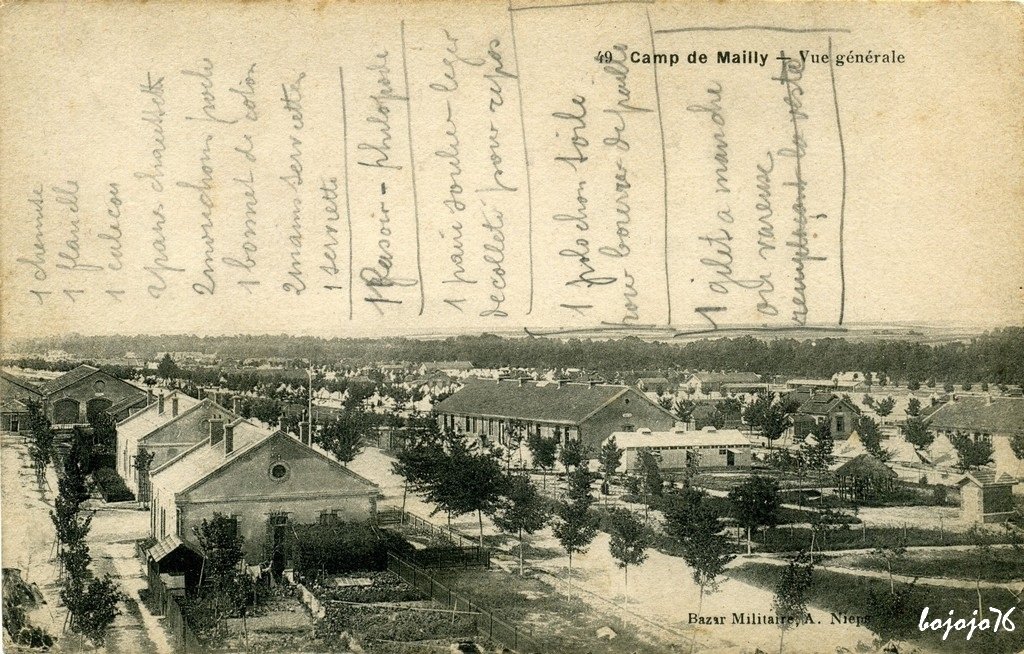 49 Camp de Mailly — Vue générale
1 chemise
1 flanelle
1 calecon
2 paires chaussett
2 mouchoirs poche
1 bonnet de coton
2 mains serviettes
1 serviette
1 Rasoir - philopode
1 paire soulier leger
decolleté pour repos
1 polochon toile
pour bourrer de paille
1 gilet a manche
ou vareuse
remplacant la veste
Bazar Militaire, A. Nieps
bojojo76